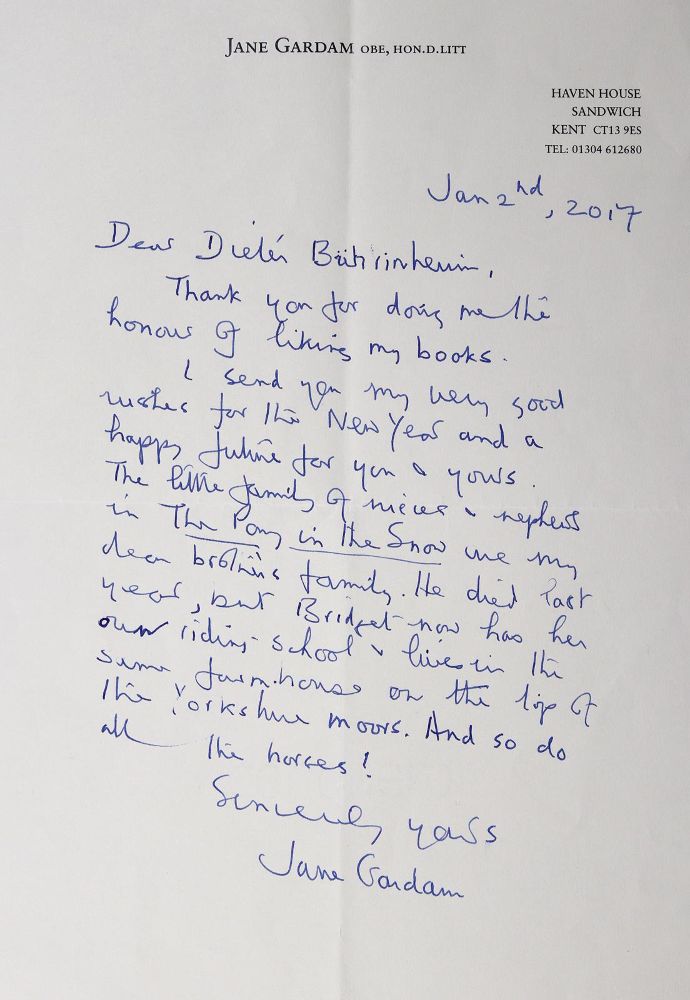 JANE GARDAM OBE, HON.D.LITT
HAVEN HOUSE
SANDWICH
KENT CT13 9ES
TEL: 01304 612680
Jan 2nd, 2017
Dear Dieter
Thank you for doing me the
honour of liking my books.
I send you my very good
wishes for the New Year and a
happy future for you & yours.
The little family of nieces & nephews
in The Pony in the Snow are my
dear brother's family. He died last
year, but Bridget now has her
own riding school & lives in the
same farm-house on the top of
the Yorkshire moors. And so do
all the horses!
Sincerely yours
Jane Gardam